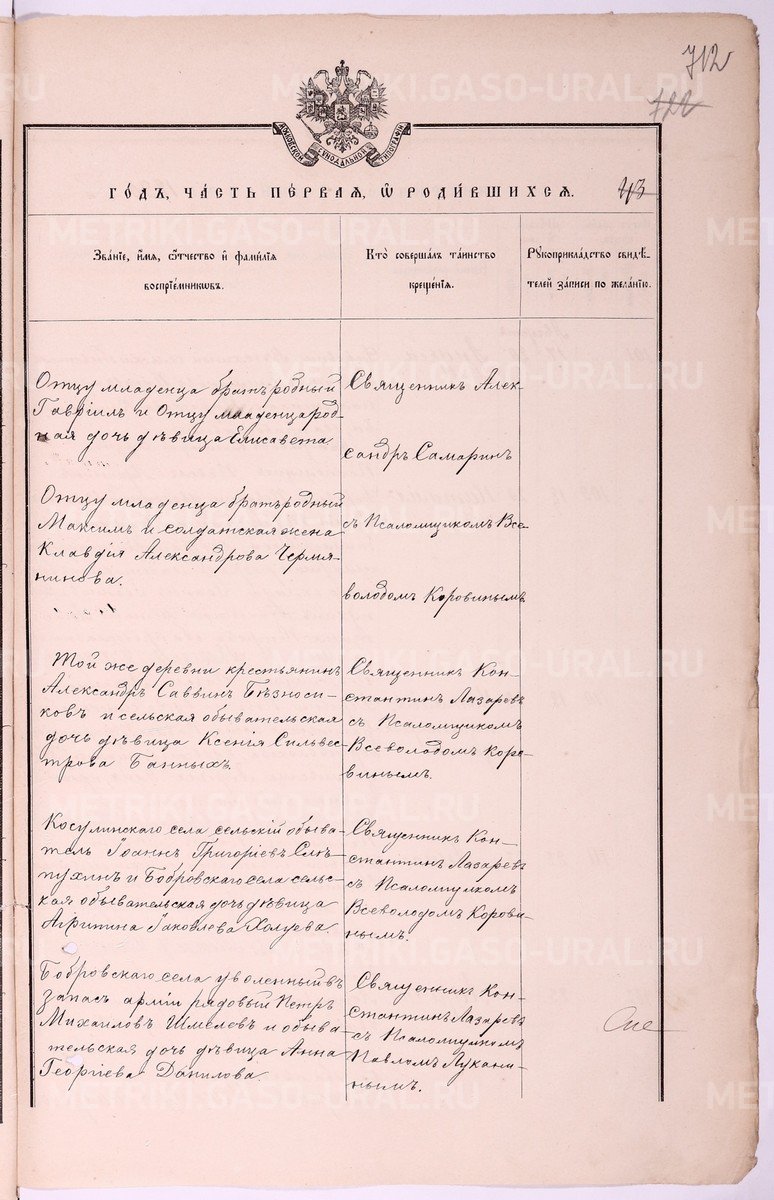 712
722
МОСКОВСКОЙ СѴНОДАЛЬНОЙ ТИПОГРАФІИ
ГО́ДЪ, ЧА́СТЬ ПЕ́РВАЯ, Ѽ РОДИ́ВШИХСЯ.
43
Зва́нїе, и́мя, ѻ҆́тчество и҆ фами́лїя
воспрїе́мникѡвъ.
Кто̀ соверша́лъ та́инство
креще́нїя.
Рꙋкоприкла́дство свидѣ́-
телей за́писи по жела́нїю.
Отцу младенца братъ родный
Гавріилъ и Отцу младенца род-
ная дочь дѣвица Елисавета
Священникъ Алек-
сандръ Самаринъ
Отцу младенца братъ родный
Максимъ и солдатская жена
Клавдія Александрова Чермя-
нинова.
съ Псаломщикомъ Все-
володомъ Коровинымъ
Той же деревни крестьянинъ
Александръ Саввинъ Бѣзноси-
ковъ и сельская обывательская
дочь дѣвица Ксенія Сильвес-
трова Банныхъ.
Священникъ Кон-
стантинъ Лазаревъ
съ Псаломщикомъ
Всеволодомъ Коро-
винымъ.
Косулинскаго села сельскій обыва-
тель Іоаннъ Григоріевъ Слѣ-
пухинъ и Бобровскаго села сельс-
кая обывательская дочь дѣвица
Агрипина Іаковлева Холуева
Священникъ Кон-
стантинъ Лазаревъ
съ Псаломщикомъ
Всеволодомъ Корови-
нымъ.
Бобровскаго села уволенный въ
запасъ арміи рядовый Петръ
Михаиловъ Шмелевъ и обыва-
тельская дочь дѣвица Анна
Георгіева Данилова.
Священникъ Кон-
стантинъ Лазаревъ
съ Псаломщикомъ
Павломъ Лукани-
нымъ.
METRIKI.GASO-URAL.RU